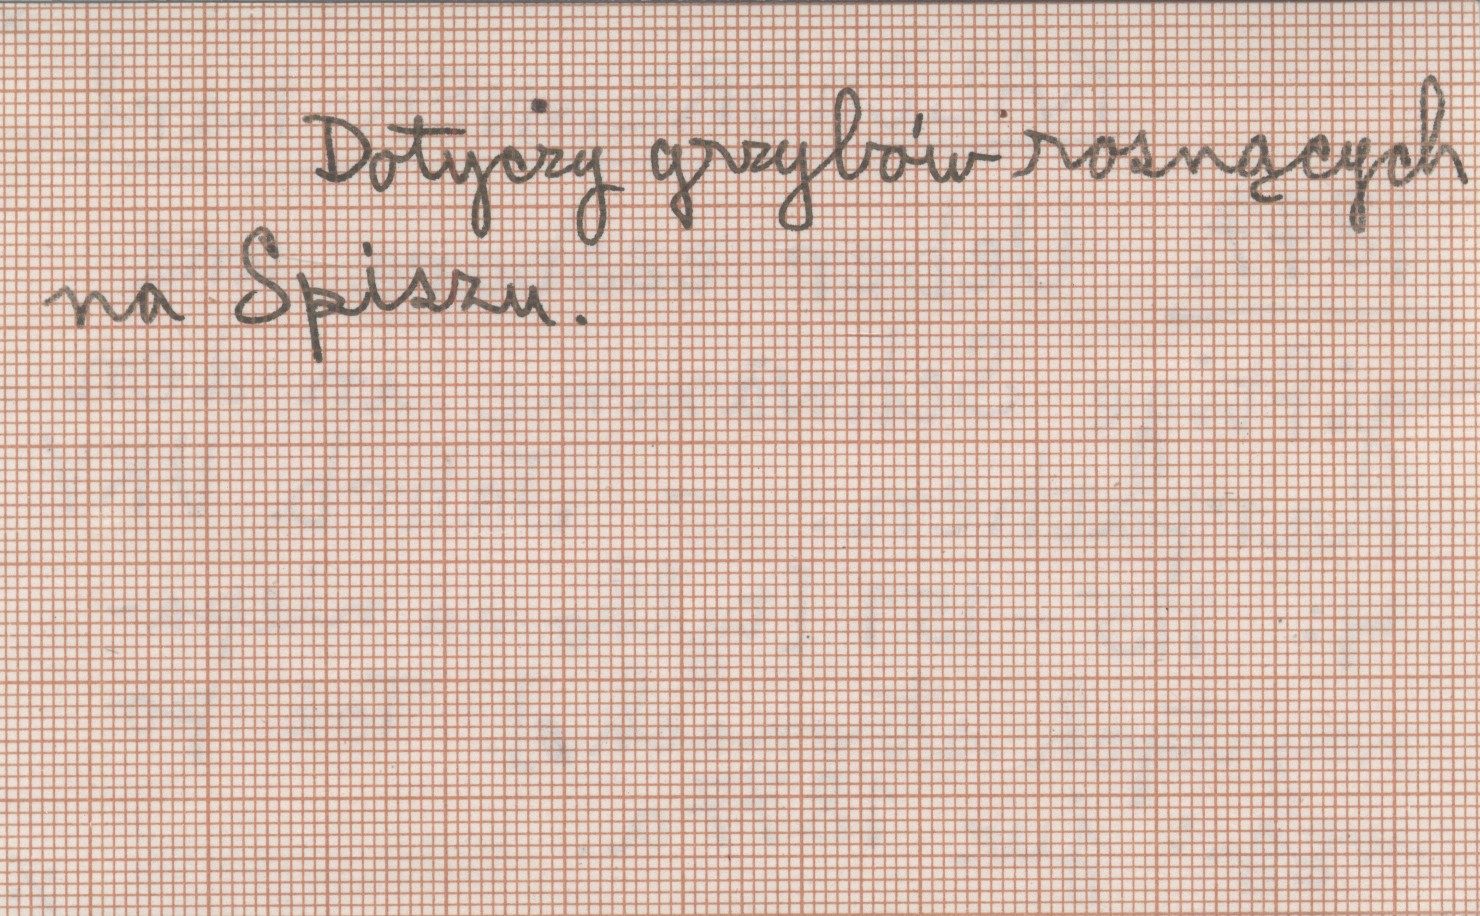 Dotyczy grzybów rosnących
na Spiszu.